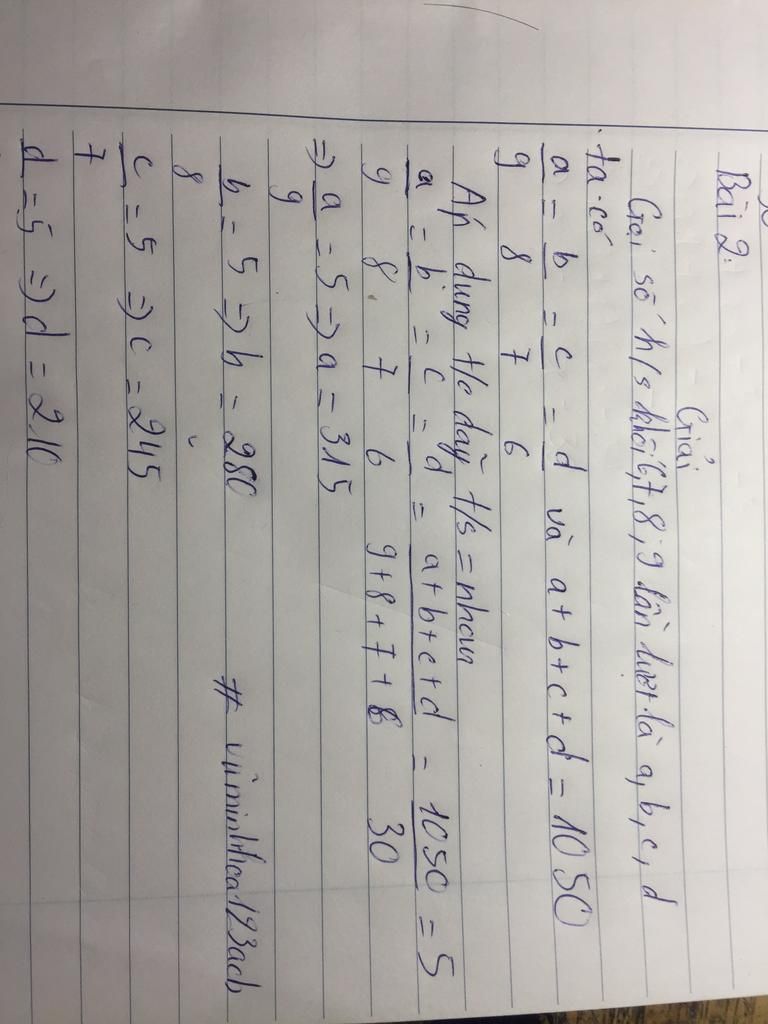 Bài 2:
Giải
Gọi số h/s khối 6, 7, 8, 9 lần lượt là a, b, c, d
ta có
a/9 = b/8 = c/7 = d/6 và a + b + c + d = 1050
Áp dụng t/c dãy t/s = nhau
a/9 = b/8 = c/7 = d/6 = a+b+c+d/9+8+7+6 = 1050/30 = 5
=> a/9 = 5 => a = 315
b/8 = 5 => b = 280
# vuminhhca123acb
c/7 = 5 => c = 245
d = 5 => d = 210